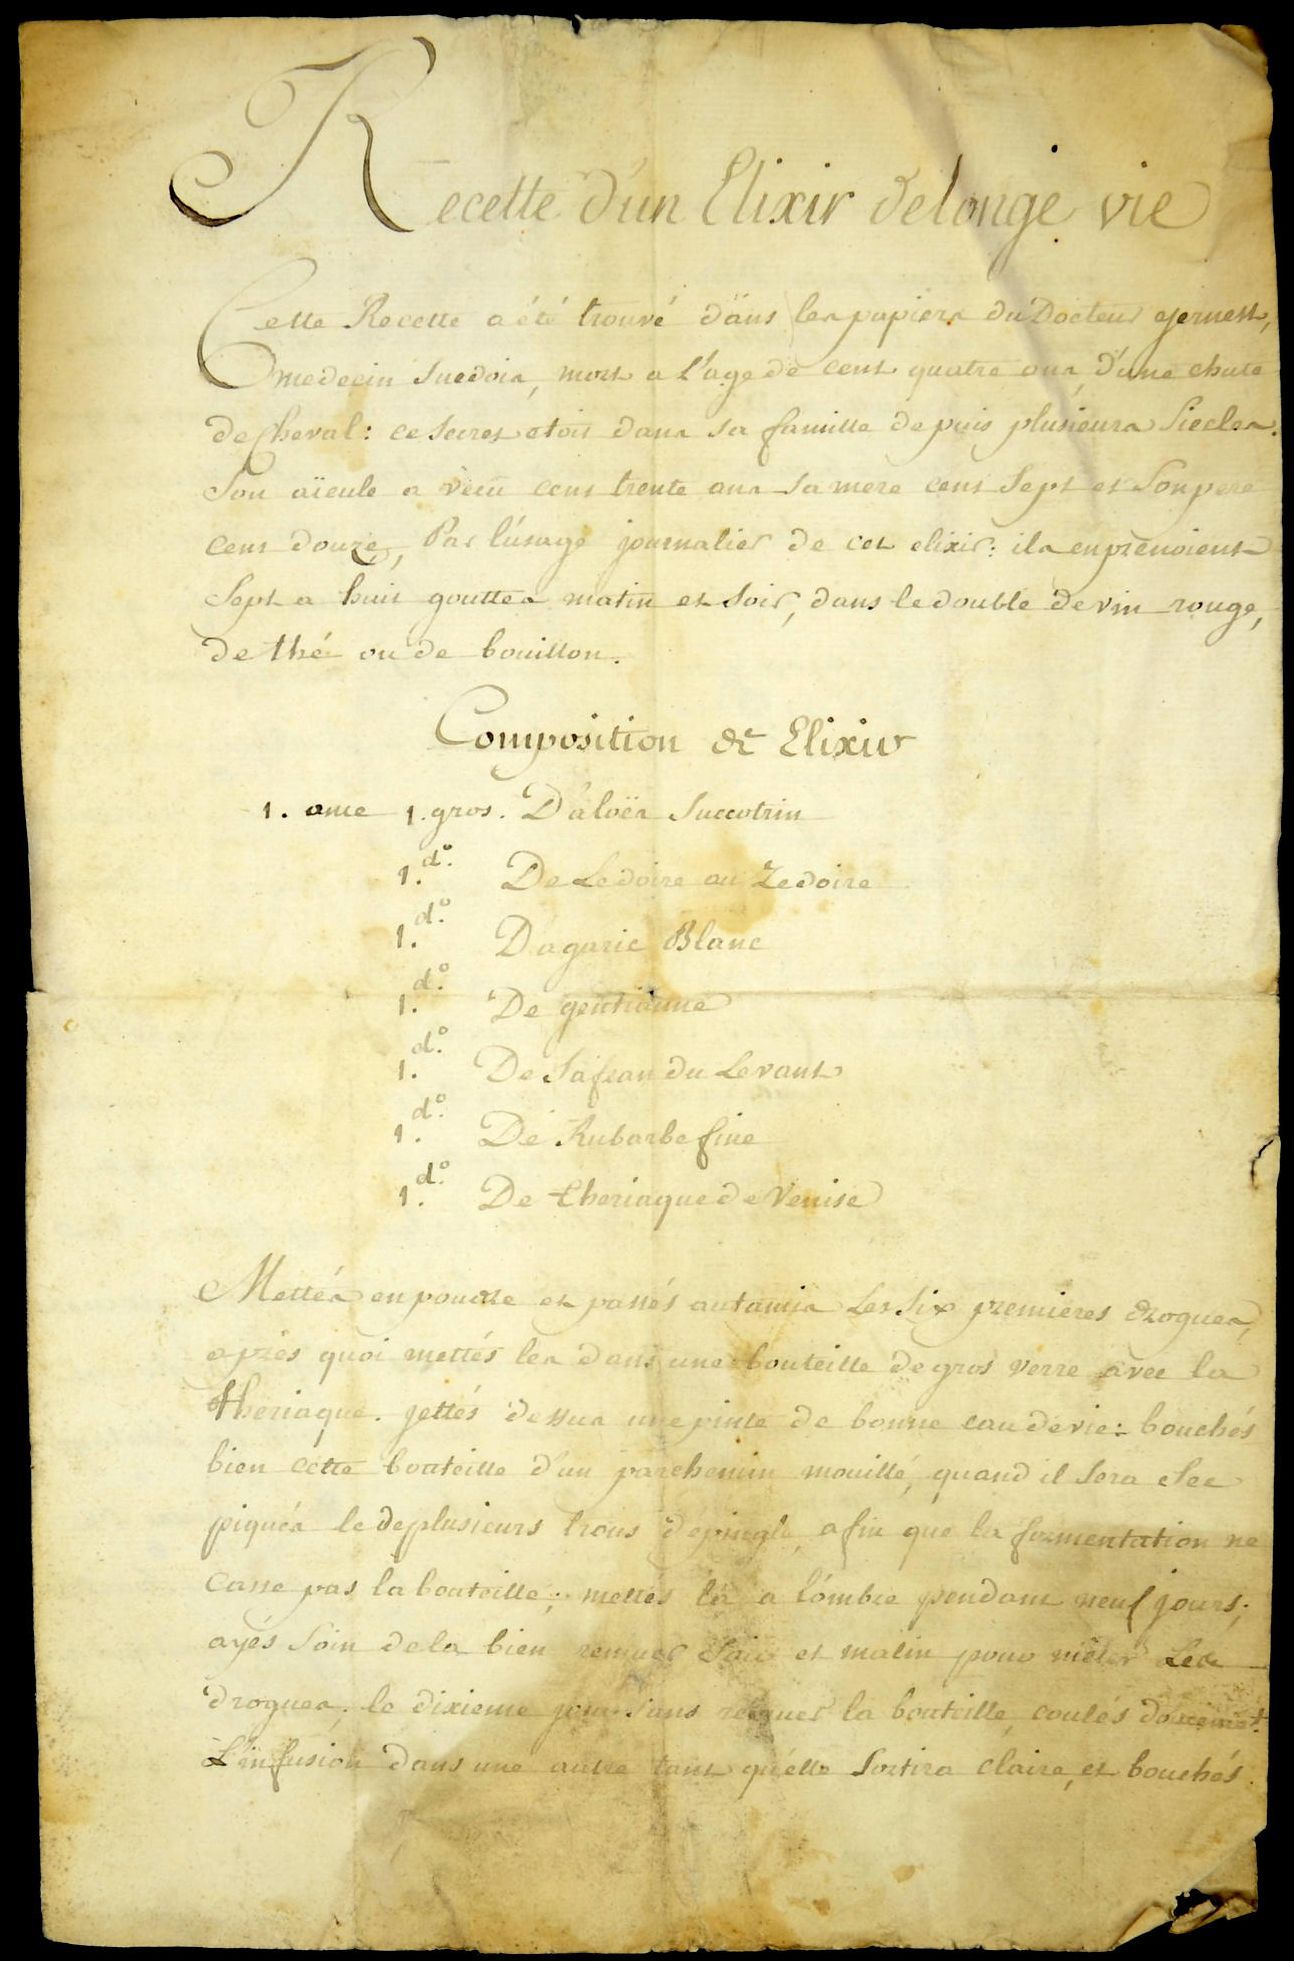 Recette d'un Elixir de longe vie
Cette Recette a été trouvé dans les papiers du Docteur ejernest,
medecin Suedois, mort a l'age de cent quatre ans, d'une chute
de Cheval: ce secret etoit dans sa famille depuis plusieurs Siecles.
Son aïeule a vecu cent trente ans sa mere cent Sept et Son pere
cent douze, Par l'usage journalier de cet elixir: ils en prenoient
Sept a huit gouttes matin et Soir, dans le double de vin rouge,
de thé ou de bouillon.
Composition de Elixir
1. once 1. gros. D'aloës Succotrin
1. d.º De Ledoire ou Zedoire
1. d.º D'agaric Blanc
1. d.º De gentianne
1. d.º De Safran du Levant
1. d.º De Rubarbe fine
1. d.º De theriaque de Venise
Mettés en poudre et passés au tamis Les Six premières drogues,
après quoi mettés les dans une bouteille de gros verre avec la
theriaque. jettés dessus une pinte de bonne eau de vie: bouchés
bien cette bouteille d'un parchemin mouillé, quand il Sera Sec
piqués le de plusieurs trous d'épingle, afin que la fermentation ne
casse pas la bouteille; mettés la a l'ombre pendant neuf jours;
ayés Soin de la bien remuer Soir et matin pour mêler Les
drogues. le dixieme jour Sans remuer la bouteille, coulés doucem.t
L'infusion dans une autre tant qu'elle Sortira claire, et bouchés